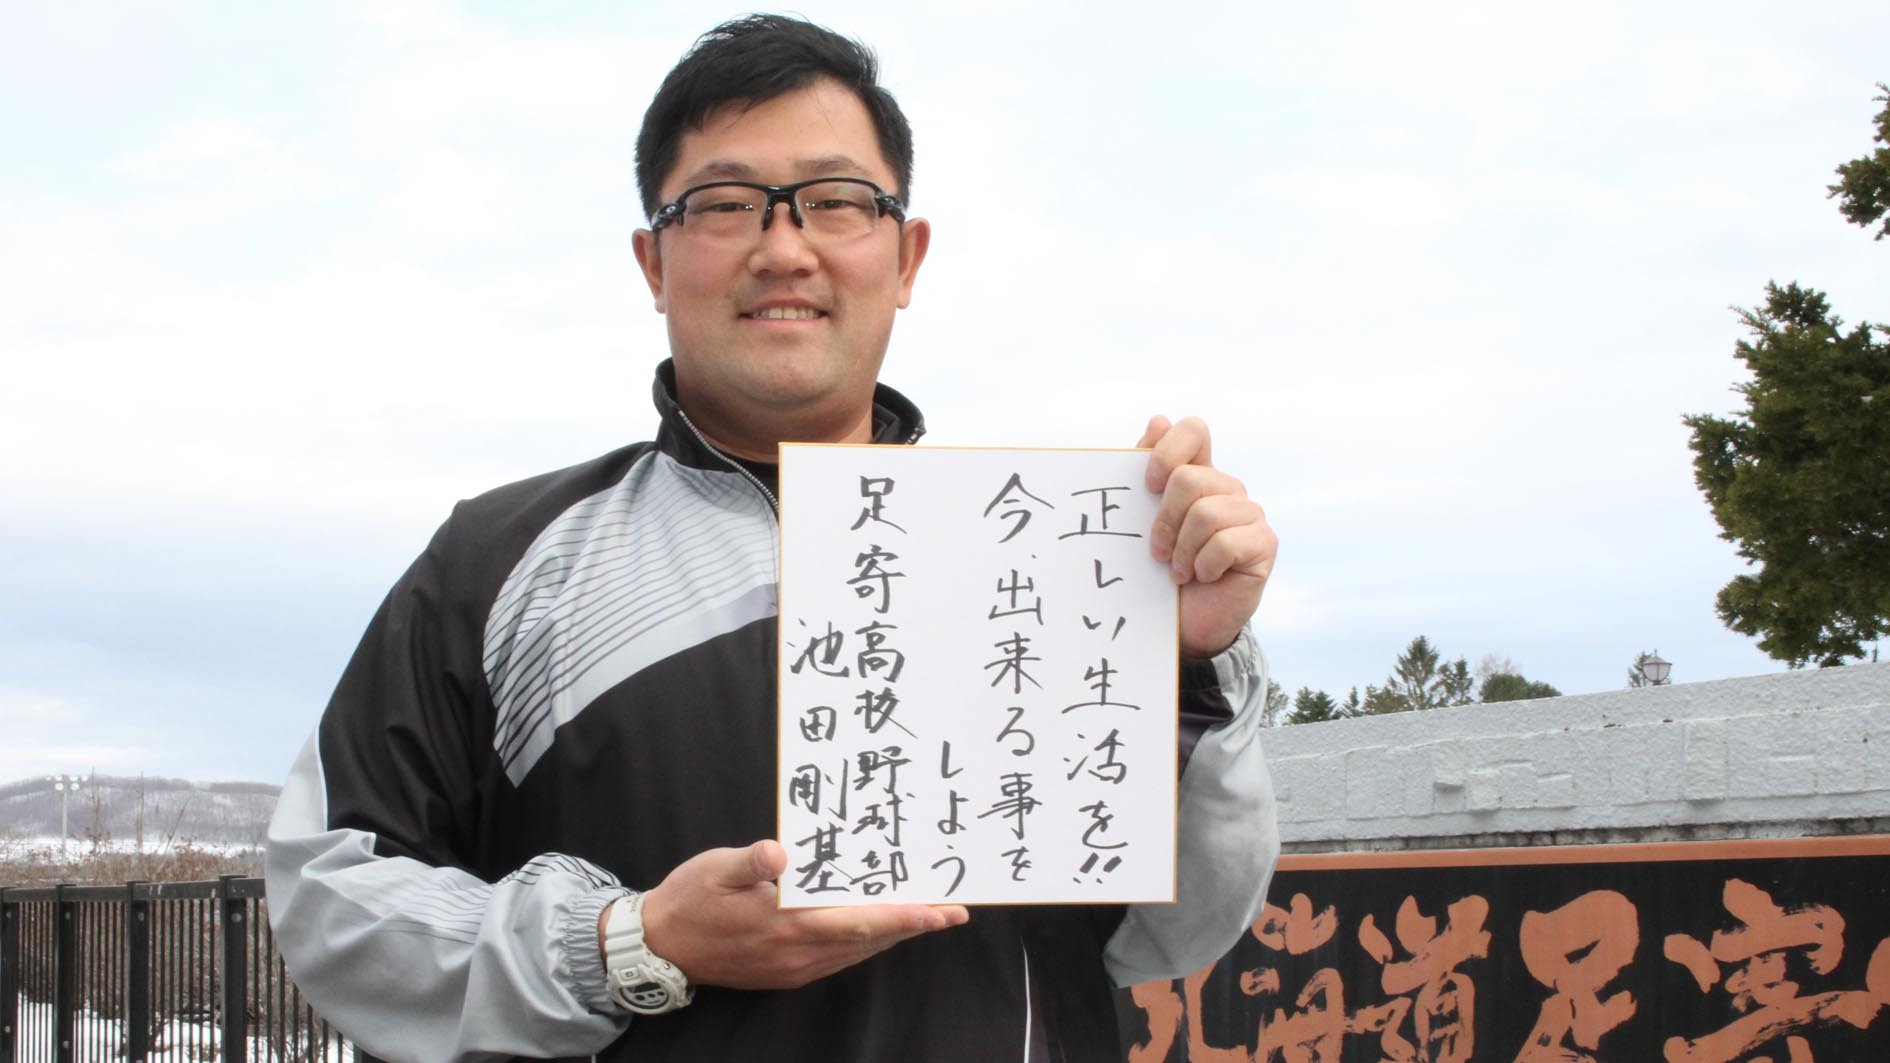 正しい生活を!!
今、出来る事を
しよう
足寄高校野球部
池田剛基
北海道足寄